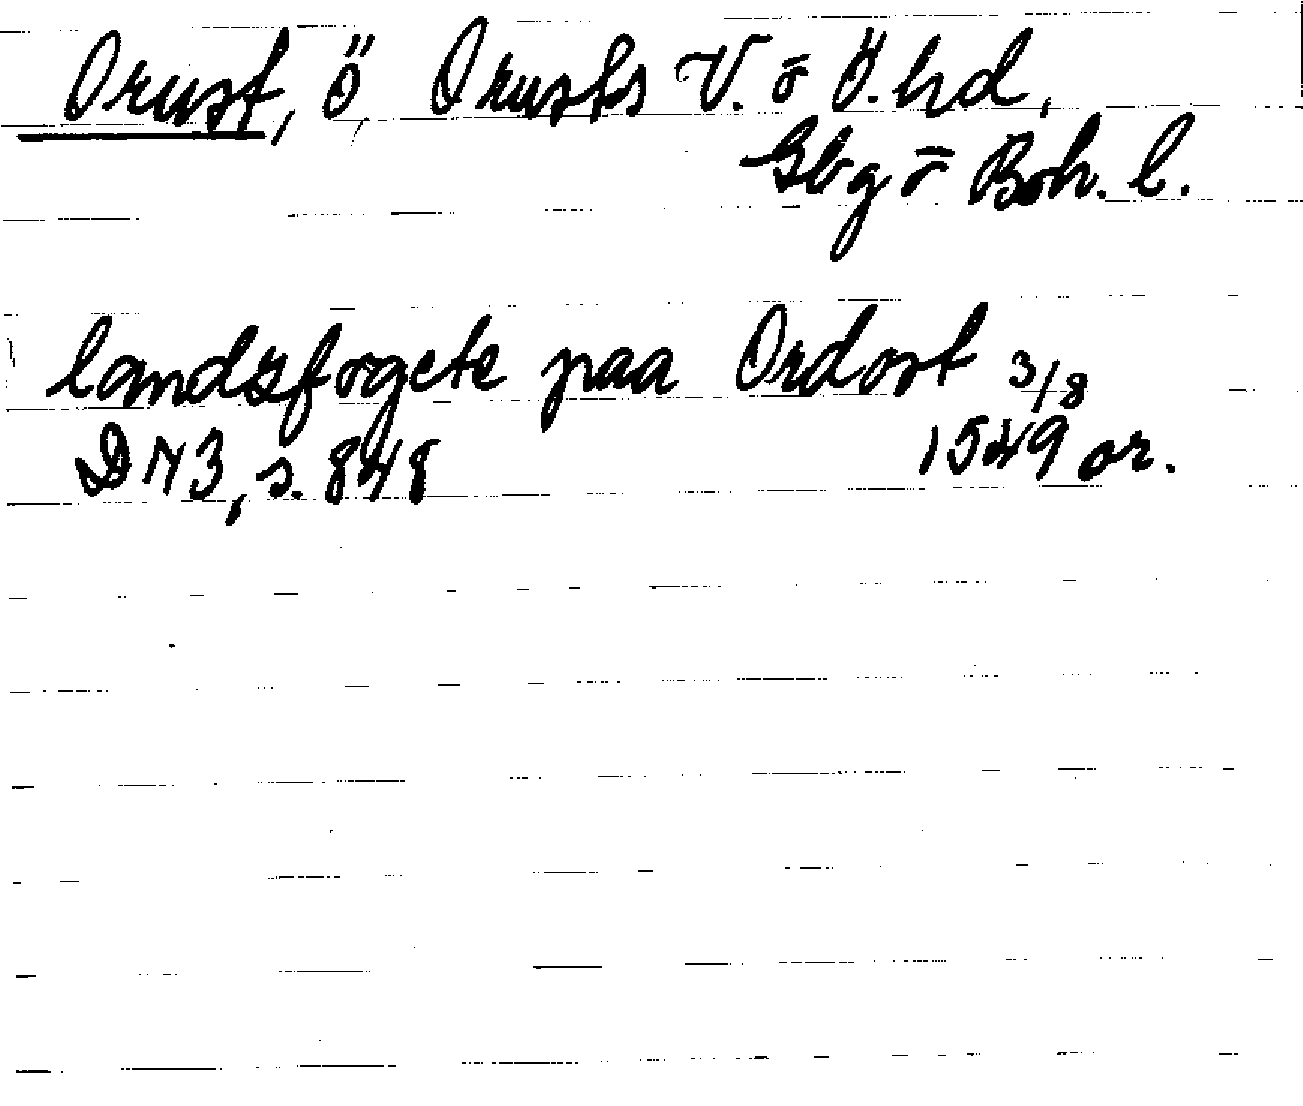 Orust, ö, Orusts V. o Ö. hd,
Gbg o Boh. l.
landzfogete paa Ordost 3/8
DN 3, s. 848 1549 or.